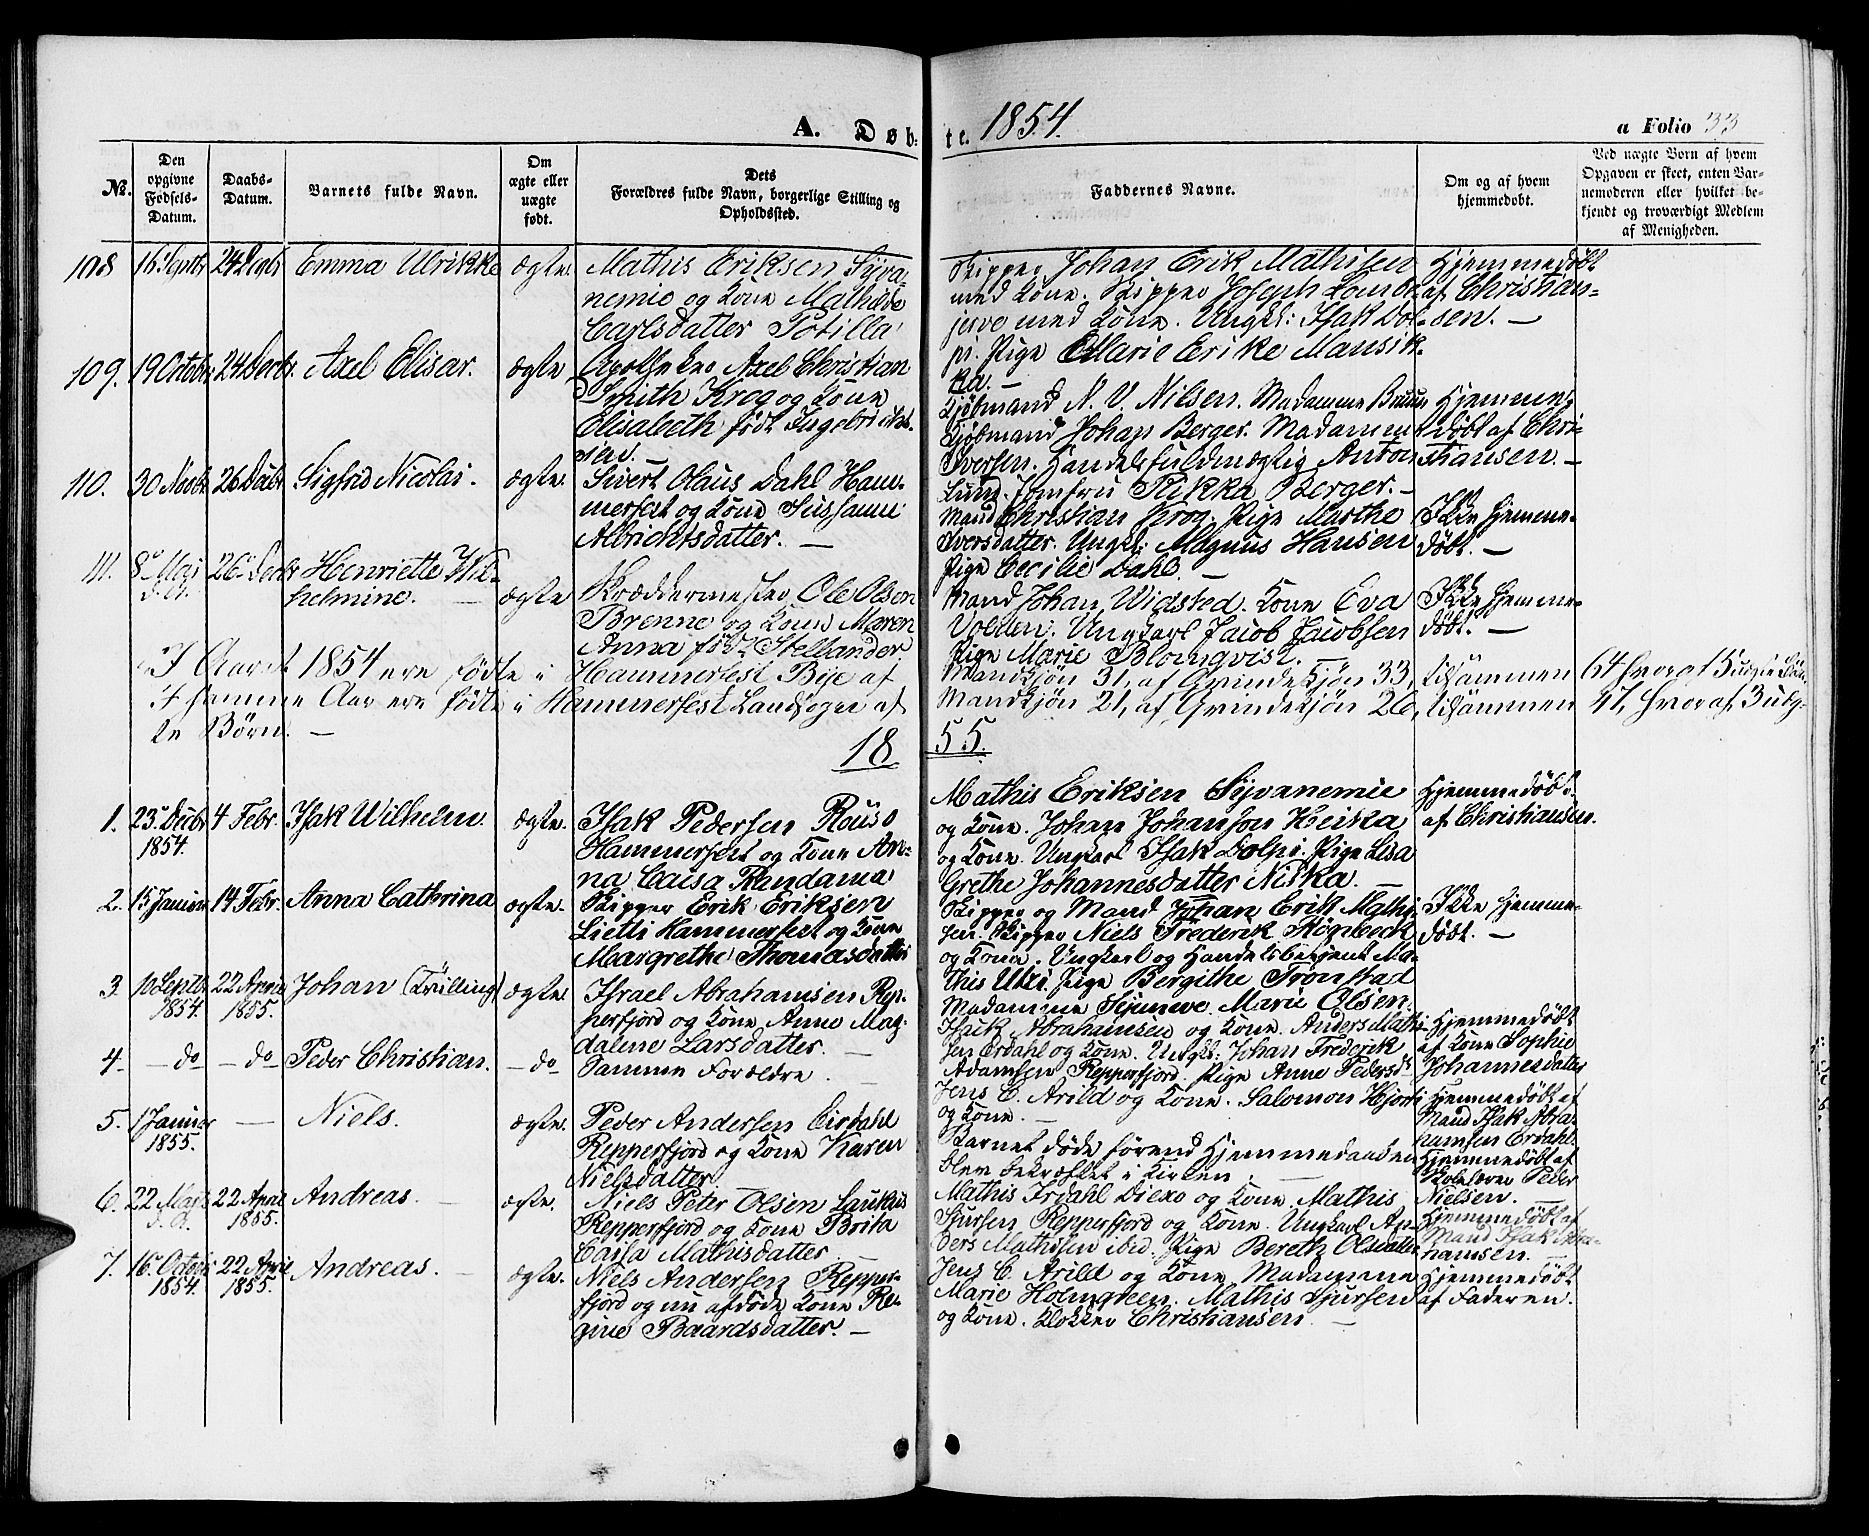 A. Døb:
te. 1854.
a Folio 33
No.
Den opgivne Fødsels-Datum.
Daabs-Datum.
Barnets fulde Navn.
Om ægte eller uægte født.
Dets Forældres fulde Navn, borgerlige Stilling og Opholdssted.
Faddernes Navne.
Om og af hvem hjemmedøbt.
Ved uægte Born af hvem
Opgaven er skeet, enten Bar-
nemoderen eller hvilket be-
kjendt og troværdigt Medlem
af Menigheden.
108 16 Septbr 24 Emma Ulrikke ægte. Mathis Eriksen Syva-
nemie og Kone Mathilde
Carlsdatter Potilla
Skipper Johan Erik Mathisen
med Kone. Skipper Joseph
jerve med Kone. Ungkl: Isak Dol-
pi. Pige Marie Erike Mansik-
ka. —
Hjemmedøbt
af Christian-
sen. —
109. 19 Octobr 24 Decbr. Axel Elisar. ægte Apotheker Axel Christian
Smith Krog og Kone
Elisabeth født Ingebrigt-
sen.
Kjøbmand N. V. Nilsen. Madamme Bruun
Kjøbmand Johan Berger. Madamme
Iversen. Handelsfuldmægtig Anton
Lund. Jomfru Rikka Berger. —
Hjemme-
døbt af Chri-
stiansen. —
110. 30 Novbr 26 Decbr Sigfrid Nicolai. ægte. Sivert Olaus Dahl Ham-
merfest og Kone Sussanne
Albrichtsdatter. —
Mand Christian Krog. Pige Marthe
Iversdatter. Ungkl: Magnus Hansen
Pige Cecilie Dahl. —
Ikke hjemme-
døbt. —
111. 8 Mai 26 Decbr Henriette Wil-
helmine. — ægte Skræddermester Ole Olsen
Brenne og Kone Maren
Anna født Stellander
Mand Johan Widsted. Kone Eva
Volden. Ungkarl Jacob Jacobsen
Pige Marie Blomqvist.
Ikke hjemme-
døbt. —
I Aaret 1854 ere fødte i Hammerfest Bye af Mandkjøn 31, af Qvindekjøn 33, tilsammen 64 hvoraf 5
I samme Aar ere fødte i Hammerfest Landsogn af Mandkjøn 21, af Qvindekjøn 26, tilsammen 47, hvoraf 3 uæg-
te Børn. —
1855.
1. 23 Decbr 1854. 4 Febr. Isak Wilhelm. ægte. Isak Pedersen Rouso
Hammerfest og Kone An-
na Caisa Randama
Mathis Eriksen Syvanemie
og Kone. Johan Johanson Heika
og Kone. Ungkarl Isak Dolpi. Pige Lisa
Grethe Johannesdatter Niska.
Hjemmedøbt
af Christiansen.
2. 15 Januar 14 Febr. Anna Cathrina ægte. Skipper Erik Eriksen
Lietti Hammerfest og Kone
Margrethe Thomasdatter
Skipper og Mand Johan Erik Mathi-
sen. Skipper Niels Frederik Stønbeck
og Kone. Ungkarl og Handelsbetjent Ma-
this Utsi. Pige Bergithe Trønstad
Madamme Marie Olsen.
Ikke hjemme-
døbt. —
3. 10 Septbr 1854. 22 April 1855. Johan (Trilling) ægte. Israel Abrahamsen Rep-
perfjord og Kone Anne Mag-
dalene Larsdatter. —
Isak Abrahamsen og Kone. Anders Mathi-
sen Erdahl og Kone. Ungkl: Johan Frederik
Adamsen Repperfjord. Pige Anne Pedersdtr
Hjemmedøbt
af Kone Sophie
Johannesdatter
4. — do — do Peder Christian. — do Samme Forældre. —
Jens C. Arild og Kone. Salomon Hjort
og Kone. —
Hjemmedøbt af
Mand Isak Abra-
hamsen Erdahl.
5. 1 Januar 1855. — Niels. ægte. Peder Andersen Eirdahl
Repperfjord og Kone Karen
Nielsdatter.
Barnet døde førend Hjemmedaaben
blev bekræftet i Kirken. —
Hjemmedøbt af
Skolelærer Peder
Nielsen. —
6. 22 Marts d. A. 22 April 1855. Andreas. — ægte. Niels Peter Olsen Laukas
Repperfjord og Kone Brita
Caisa Mathisdatter
Mathis Irdahl og Kone. Mathis
Sjursen Repperfjord og Kone. Ungkarl An-
ders Mathisen ibid. Pige Bereth Olsdatter
Hjemmedøbt af
Mand Isak Abra-
hamsen. —
7. 16 Octobr 1854. 22 April 1855. Andreas. — ægte. Niels Andersen Repper-
fjord og nu afdøde Kone Re-
gine Baardsdatter. —
Jens C. Arild og Kone. Madamme
Marie Holmgreen. Mathis Sjursen
og Kone. Klokker Christiansen. —
Hjemmedøbt
af Faderen.